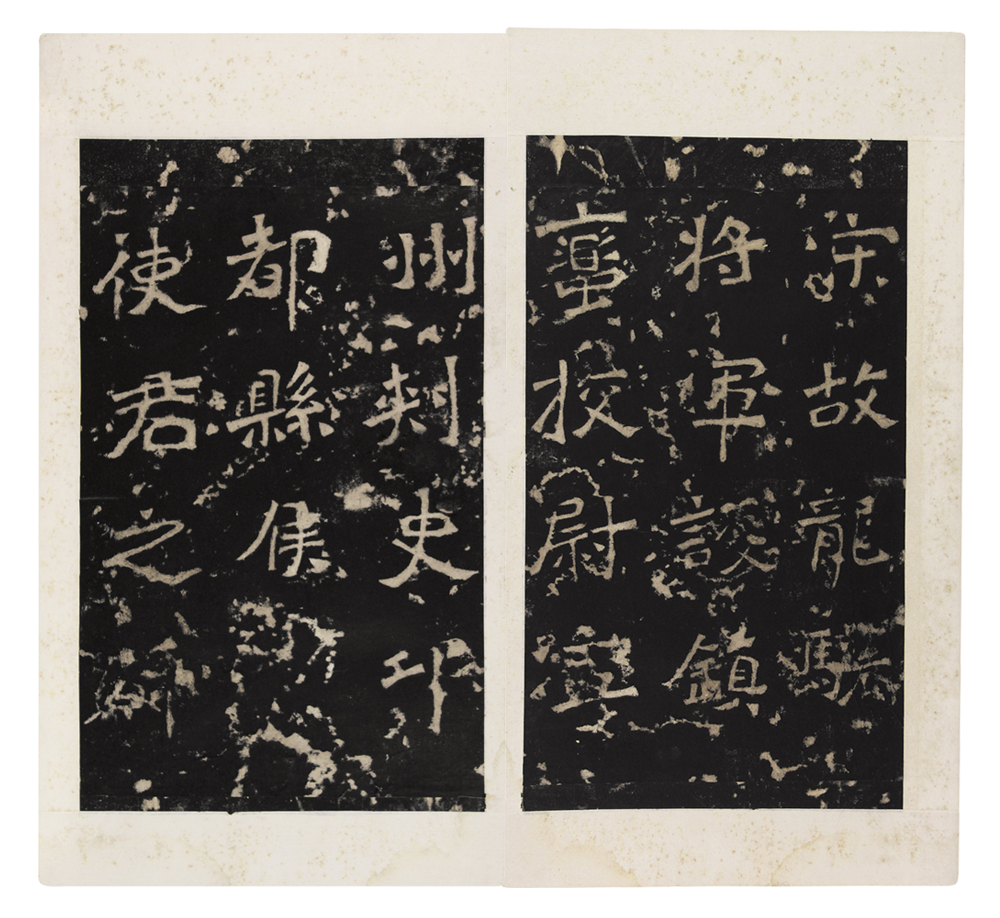 宋故龍驤
將軍護鎮
蠻挍尉寧
州刺史邛
都縣侯
使君之碑